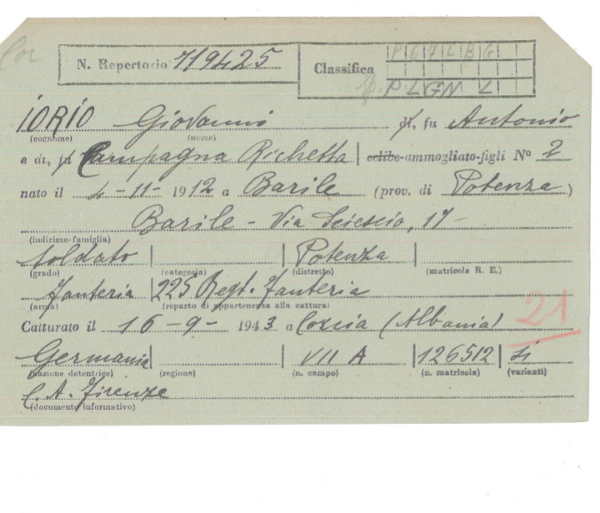 N. Repertorio 719425 Classifica
IORIO Giovanni di, fu Antonio
(cognome) (nome)
e di, fu Campagna Richetta celibe-ammogliato-figli N° 2
nato il 4-11-1912 a Barile (prov. di Potenza)
Barile - Via 17-
(indirizzo famiglia)
soldato Potenza
(grado) (categoria) (distretto) (matricola R. E.)
Fanteria 225 Regt. Fanteria
(arma) (reparto di appartenenza alla cattura)
Catturato il 16-9-1943 a (Albania) 21
Germania VII A 126512 si
(nazione detentrice) (regione) (n. campo) (n. matricola) (varianti)
C. A. Firenze
(documento informativo)